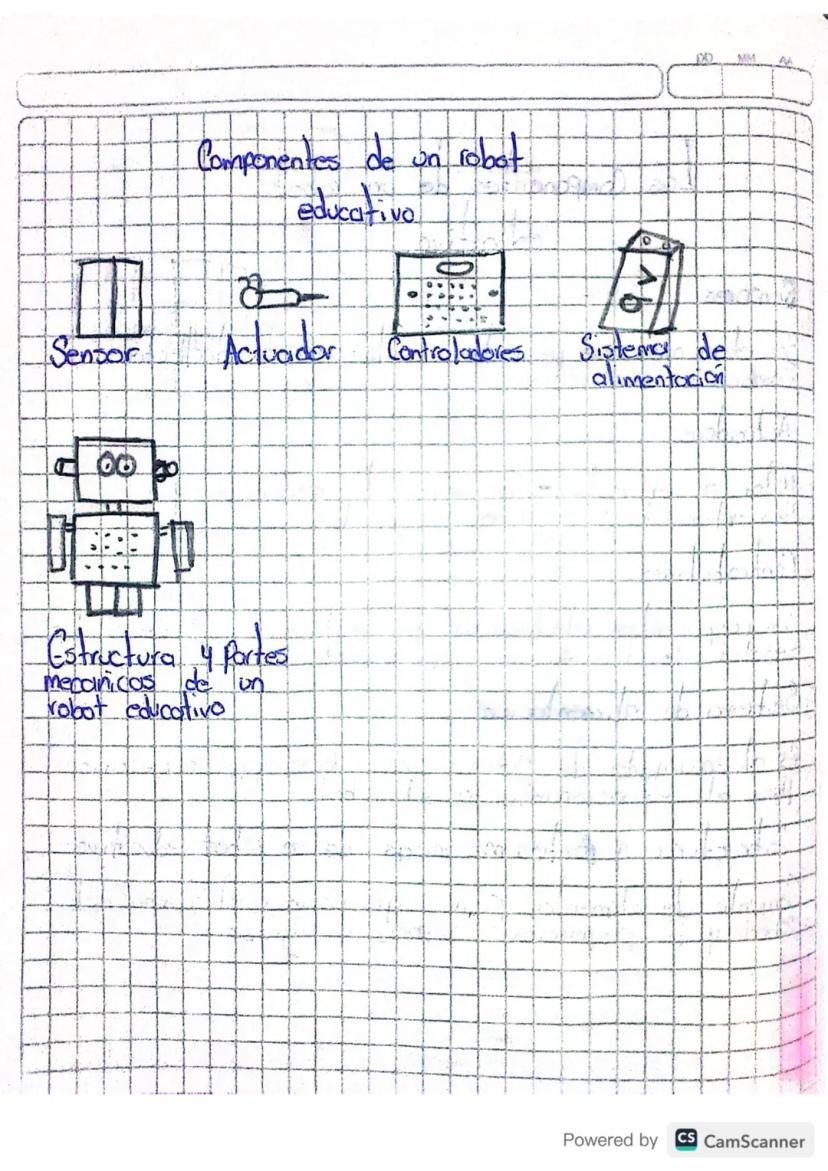 DD MM AA
Componentes de un robot
educativo
9V
Sensor Actuador Controladores Sistema de
alimentación
Estructura y Partes
mecanicas de un
robot educativo
Powered by CS CamScanner